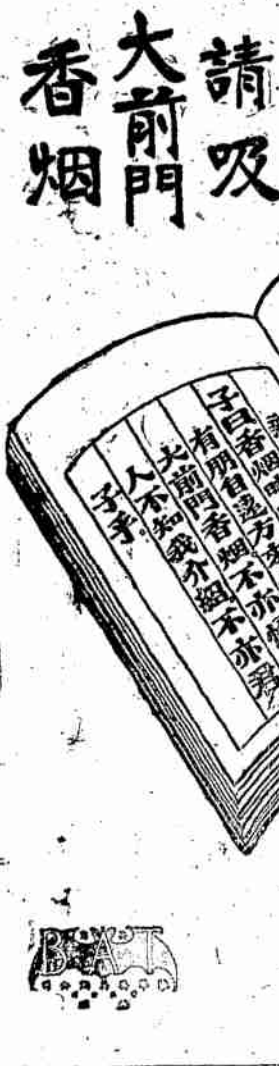 請吸
大前門
香烟
子曰香烟
有朋自遠方
大前門香烟不亦
人不知我介紹不亦君
子乎。
BAT